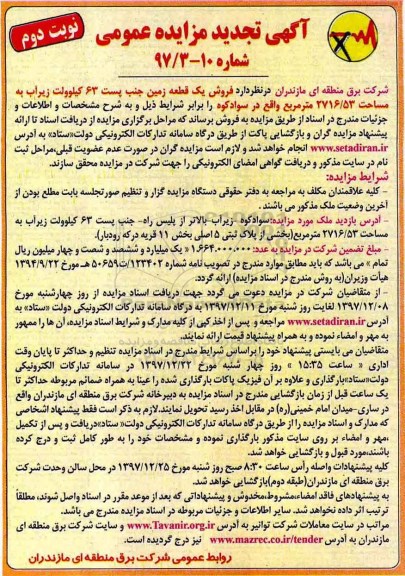 نوبت دوم
آگهی تجدید مزایده عمومی
شماره ۱۰-۹۷/۳
شرکت برق منطقه ای مازندران درنظردارد فروش یک قطعه زمین جنب پست ۶۳ کیلوولت زیرآب به
مساحت ۲۷۱۶/۵۳ مترمربع واقع در سوادکوه را برابر شرایط ذیل و به شرح مشخصات و اطلاعات و
جزئیات مندرج در اسناد از طریق مزایده به فروش برساند که مراحل برگزاری مزایده از دریافت اسناد تا ارائه
پیشنهاد مزایده گران و بازگشایی پاکت از طریق درگاه سامانه تدارکات الکترونیکی دولت«ستاد» به آدرس
www.setadiran.ir انجام خواهد شد و لازم است مزایده گران در صورت عدم عضویت قبلی،مراحل ثبت
نام در سایت مذکور و دریافت گواهی امضای الکترونیکی را جهت شرکت در مزایده محقق سازند.
شرایط مزایده:
- کلیه علاقمندان مکلف به مراجعه به دفتر حقوقی دستگاه مزایده گزار و تنظیم صورتجلسه بابت مطلع بودن از
آخرین وضعیت ملک مذکور می باشند.
- آدرس بازدید ملک مورد مزایده:سوادکوه زیرآب بالاتر از پلیس راه- جنب پست ۶۳ کیلوولت زیرآب به
مساحت ۲۷۱۶/۵۳ مترمربع(بخشی از پلاک ثبتی ۵ اصلی بخش ۱۱ قریه درکه رودبار).
- مبلغ تضمین شرکت در مزایده به عدد: ۱.۶۶۴.۰۰۰.۰۰۰ « یک میلیارد و ششصد و شصت و چهار میلیون ریال
تمام » می باشد که باید مطابق موارد مندرج در تصویب نامه شماره ۱۲۳۴۰۲/ت۵۰۶۵۹ هـ مورخ ۱۳۹۴/۹/۲۲
هیأت وزیران(به روش مندرج در اسناد مزایده) ارائه گردد.
- از متقاضیان شرکت در مزایده دعوت می گردد جهت دریافت اسناد مزایده از روز چهارشنبه مورخ
۱۳۹۷/۱۲/۰۸ لغایت روز شنبه مورخ ۱۳۹۷/۱۲/۱۱ به درگاه سامانه تدارکات الکترونیکی دولت «ستاد» به
آدرس www.setadiran.ir مراجعه و پس از اخذ کپی از کلیه مدارک و شرایط اسناد مزایده، آن ها را ممهور به
مهر و امضاء نموده و به همراه پیشنهاد قیمت ارائه نمایند.
متقاضیان می بایستی پیشنهاد خود را براساس شرایط مندرج در اسناد مزایده تنظیم و حداکثر تا پایان وقت
اداری « ساعت ۱۵:۳۵ » روز چهار شنبه مورخ ۱۳۹۷/۱۲/۲۲ در سامانه تدارکات الکترونیکی
دولت«ستاد»بارگذاری و علاوه بر آن فیزیک پاکات بارگذاری شده را عینا به همراه ضمائم مربوطه حداکثر تا
یک ساعت قبل از زمان بازگشایی مندرج در اسناد مزایده به دبیرخانه شرکت برق منطقه ای مازندران واقع
در ساری-میدان امام خمینی(ره) در مقابل اخذ رسید تحویل نمایند.لازم به ذکر است فقط پیشنهاد اشخاصی
که مدارک و اسناد مزایده را از طریق درگاه سامانه تدارکات الکترونیکی دولت«ستاد»دریافت و پس از تکمیل
،مهر و امضاء بر روی سایت مذکور بارگذاری نموده و مشخصات خود را به طور کامل ثبت و درج کرده
باشند،مورد قبول و بازگشایی خواهد شد.
کلیه پیشنهادات واصله رأس ساعت ۸:۳۰ صبح روز شنبه مورخ ۱۳۹۷/۱۲/۲۵ در محل سالن وحدت شرکت
برق منطقه ای مازندران(طبقه دوم)بازگشایی خواهد شد.
به پیشنهادهای فاقد امضاء،مشروط،مخدوش و پیشنهاداتی که بعد از موعد مقرر در اسناد واصل شوند، مطلقاً
ترتیب اثر داده نخواهد شد. سایر اطلاعات و جزئیات مربوطه در اسناد مزایده مندرج می باشد.
مراتب در سایت معاملات شرکت توانیر به آدرس www.Tavanir.org.ir و سایت شرکت برق منطقه ای
مازندران به آدرس www.mazrec.co.ir/tender نیز درج گردیده است.
روابط عمومی شرکت برق منطقه ای مازندران